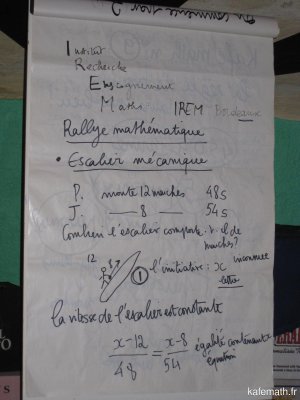 Institut
Recherche
Enseignement
Maths IREM Bordeaux
Rallye mathématique
• Escalier mécanique
P. monte 12 marches 48s
J. — 8 — 54s
Combien l'escalier comporte-t-il de
marches?
12
8
① l'initiative : x inconnue
lettre
la vitesse de l'escalier est constante
x-12 = x-8 égalité contenant
48 54 equation
kafemath.fr